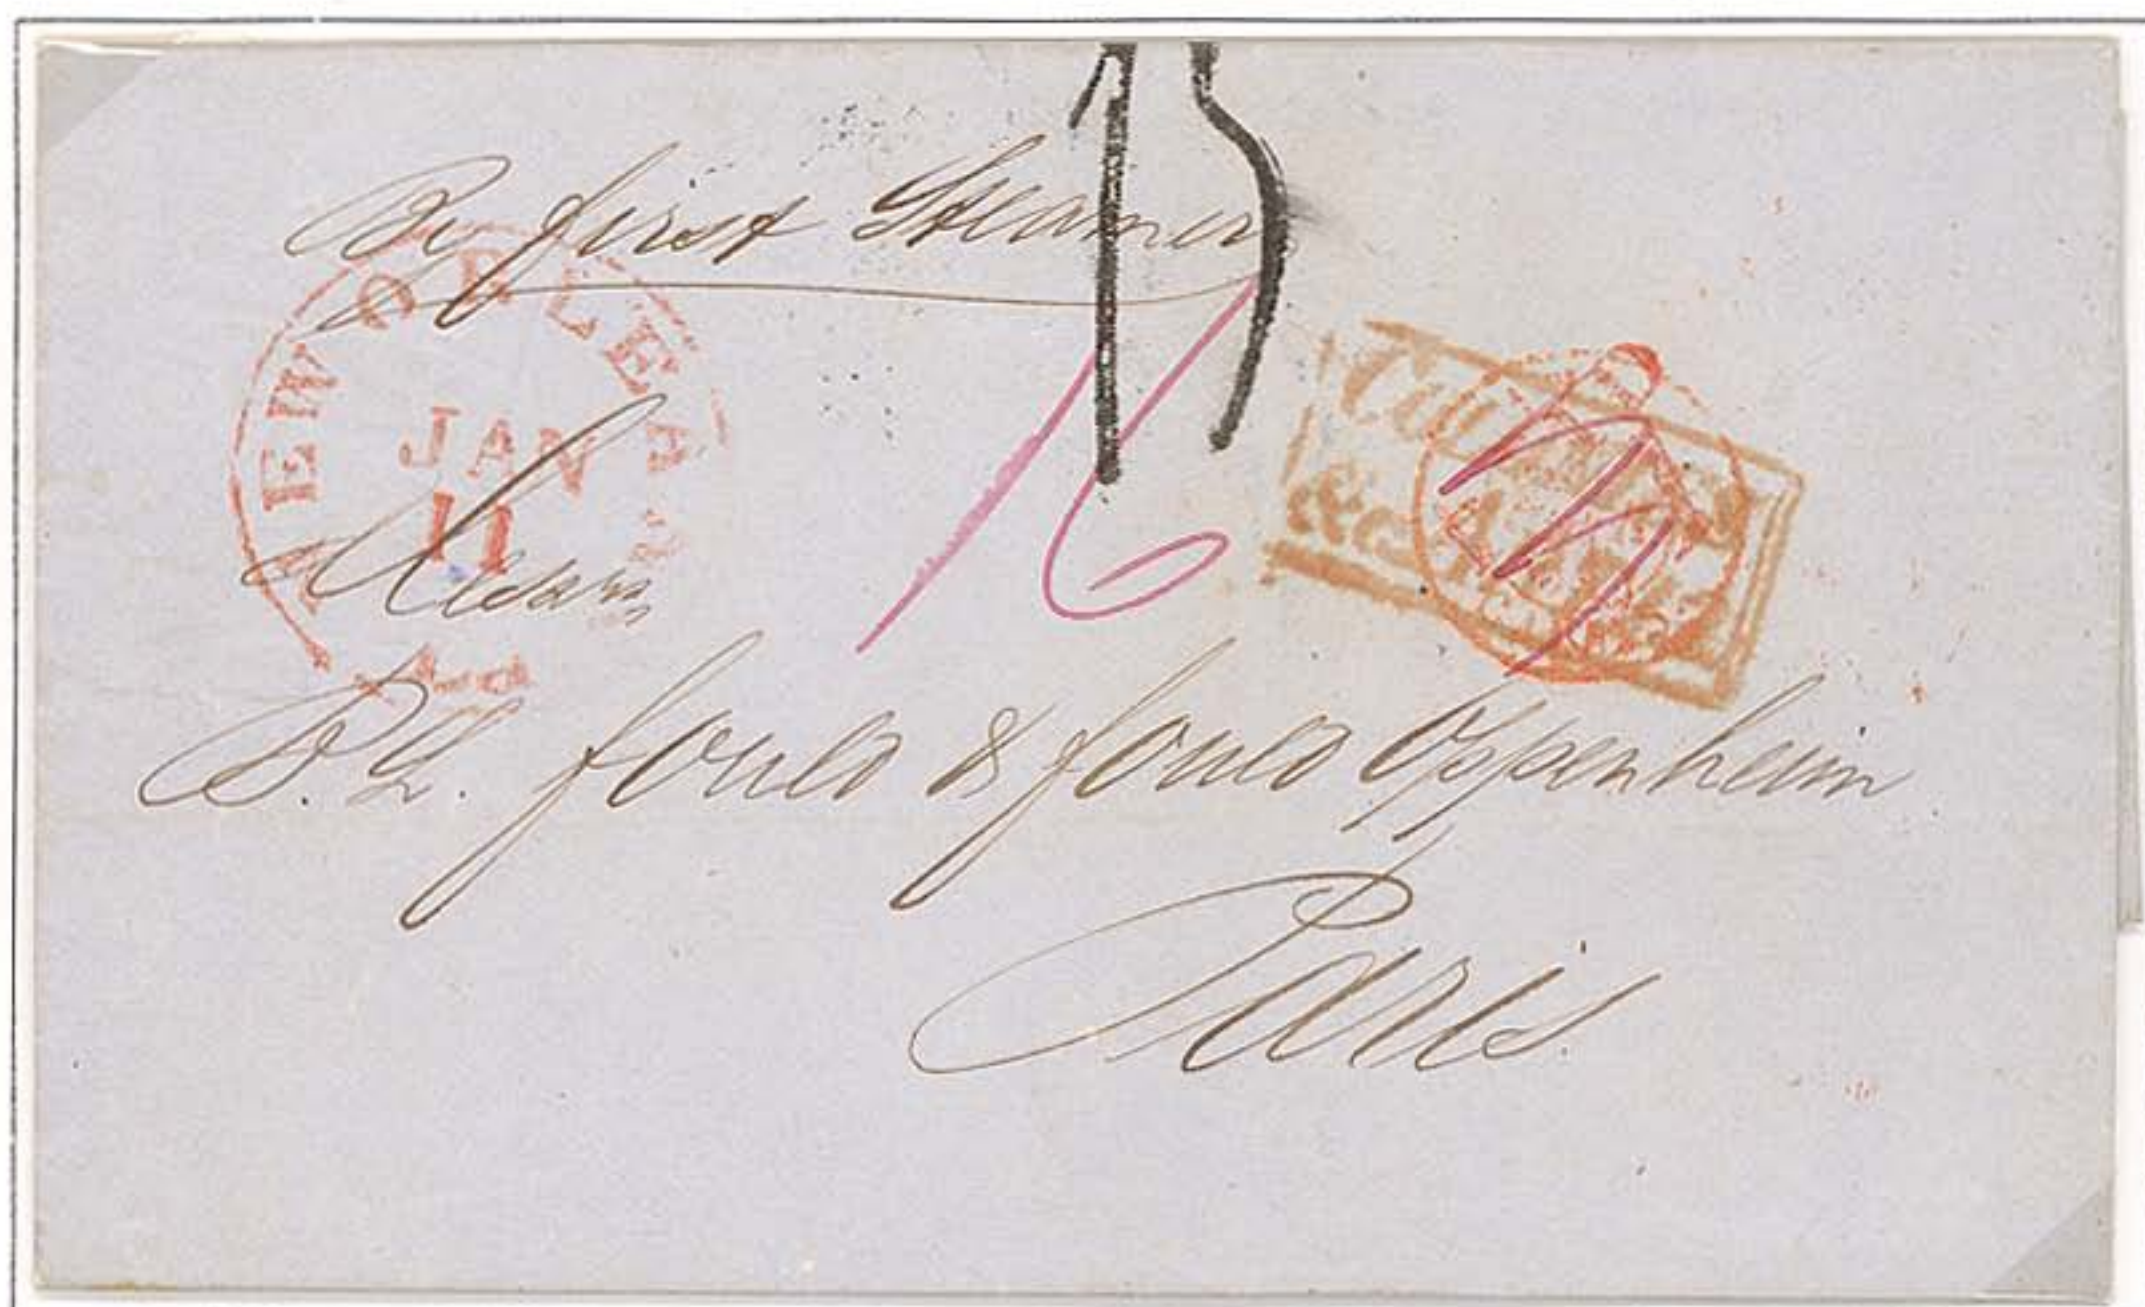 Per first Steamer
NEW ORLEANS
JAN
11
LA
15
16
Messrs
B. L. Fould & Fould Oppenheim
Paris